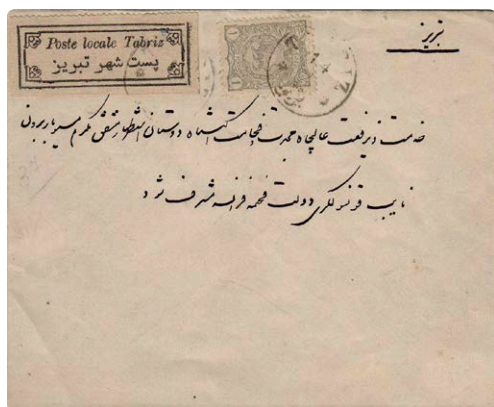 Poste locale Tabriz
پست شهر تبریز
1 1
تبریز
خدمت ذیرفعت عالیجاه مجدت و فخامت اکتناه دوستان استظهار مشفق مکرم مسیو
نایب قونسولگری دولت فخیمه فرانسه مشرف شود